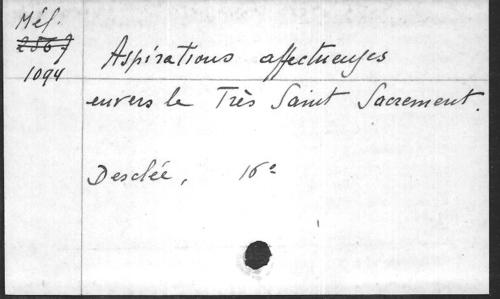 Mél.
256 J
1094
Aspirations affectueuses
envers le Très Saint Sacrement.
Desclée, 16e